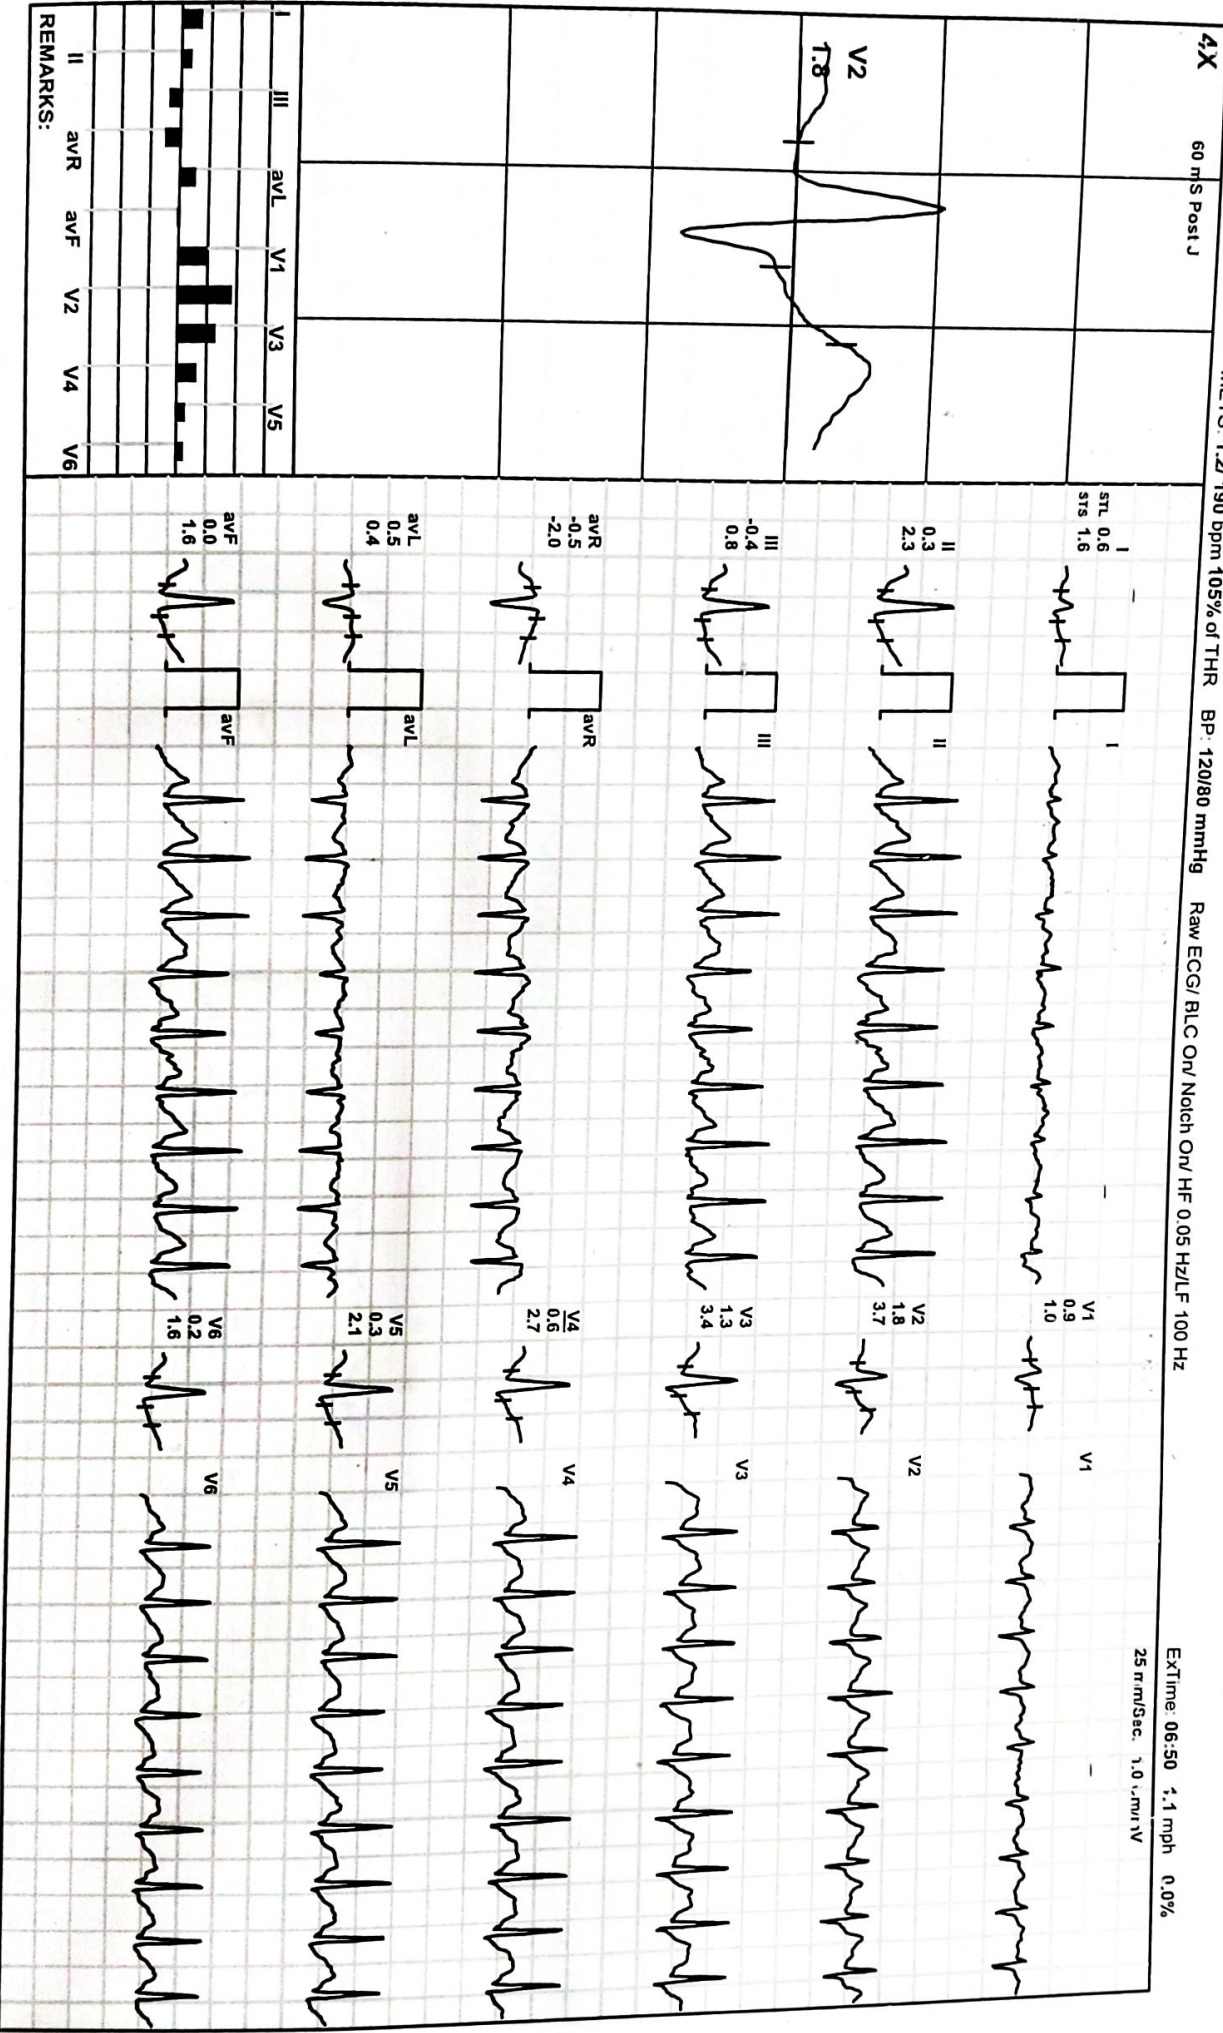 1.2/ 190 bpm 105% of THR BP: 120/80 mmHg Raw ECG/ BLC On/ Notch On/ HF 0.05 Hz/LF 100 Hz
ExTime: 06:50 1.1 mph 0.0%
25 mm/Sec. 1.0 cm/mV
4X
60 mS Post J
V2
1.8
I
STL 0.6
STS 1.6
I
II
0.3
2.3
II
III
-0.4
0.8
III
avR
-0.5
-2.0
avR
avL
0.5
0.4
avL
avF
0.0
1.6
avF
V1
0.9
1.0
V1
V2
1.8
3.7
V2
V3
1.3
3.4
V3
V4
0.6
2.7
V4
V5
0.3
2.1
V5
V6
0.2
1.6
V6
I III avL V1 V3 V5
II avR avF V2 V4 V6
REMARKS: